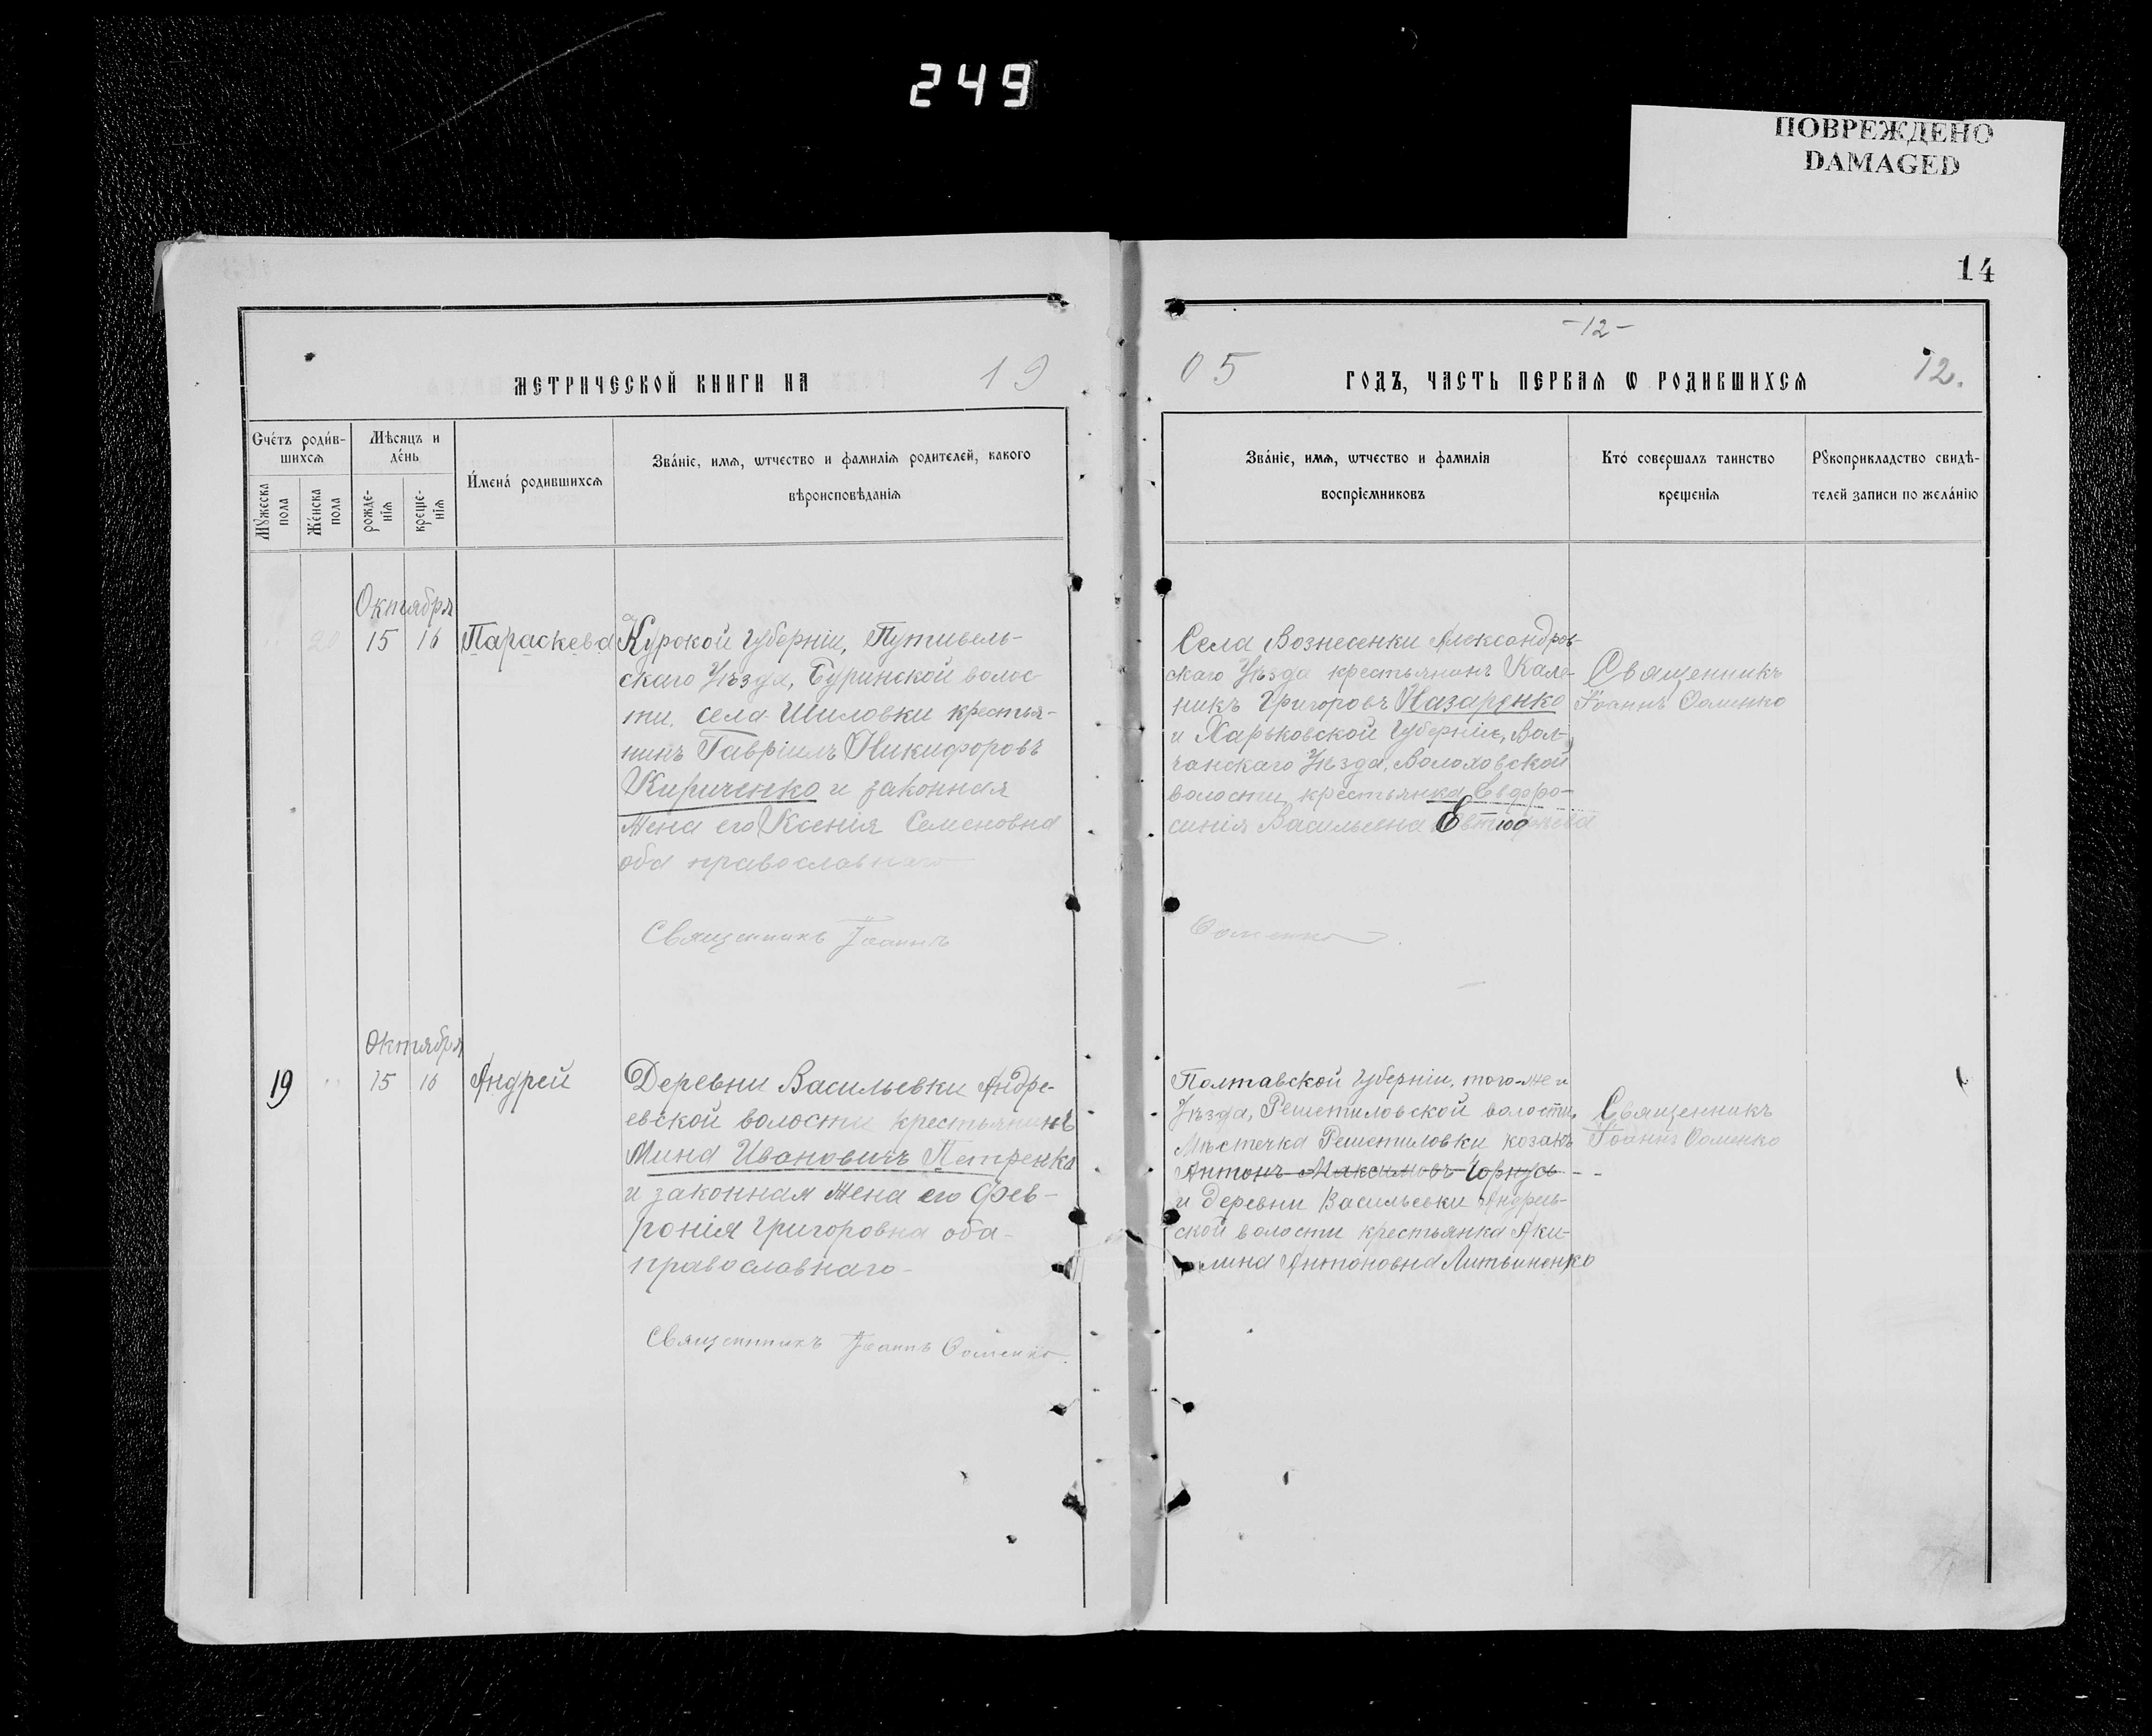 249
ПОВРЕЖДЕНО
DAMAGED
14
-12-
МЕТРИЧЕСКОЙ КНИГИ НА 19
05 ГОДЪ, ЧАСТЬ ПЕРВАЯ Ѡ РОДИВШИХСЯ 12.
Счетъ родив-
шихся
Мѣсяцъ и
день
Мужеска
пола
Женска
пола
рожде-
нія
креще-
нія
Имена родившихся
Званіе, имя, ѡтчество и фамилія родителей, какого
вѣроисповѣданія
Званіе, имя, ѡтчество и фамилія
воспріемниковъ
Кто совершалъ таинство
крещенія
Рукоприкладство свидѣ-
телей записи по желанію
Октября
20 15 16 Параскева
Курской Губерніи, Путивель-
скаго Уѣзда, Буринской волос-
ти, села Шиловки крестья-
нинъ Гавріилъ Никифоровъ
Кириченко и законная
жена его Ксенія Семеновна
оба православнаго
Священникъ Іоаннъ
Села Вознесенки Александров-
скаго Уѣзда крестьянинъ Кале-
никъ Григоровъ Назаренко
и Харьковской Губерніи, Вол-
чанскаго Уѣзда, Волоховской
волости, крестьянка Евфро-
синія Васильевна
Священникъ
Іоаннъ
Октября
19 15 16 Андрей
Деревни Васильевки Андре-
евской волости крестьянинъ
Мина Ивановичъ Петренко
и законная жена его Фев-
ронія Григоровна оба
православнаго
Священникъ Іоаннъ
Полтавской Губерніи, того-же и
Уѣзда, Решетиловской волости,
Мѣстечка Решетиловки козакъ
Антонъ Максимовъ Чорнусь
и деревни Васильевки Андреев-
ской волости крестьянка Аки-
лина Антоновна Литвиненко
Священникъ
Іоаннъ